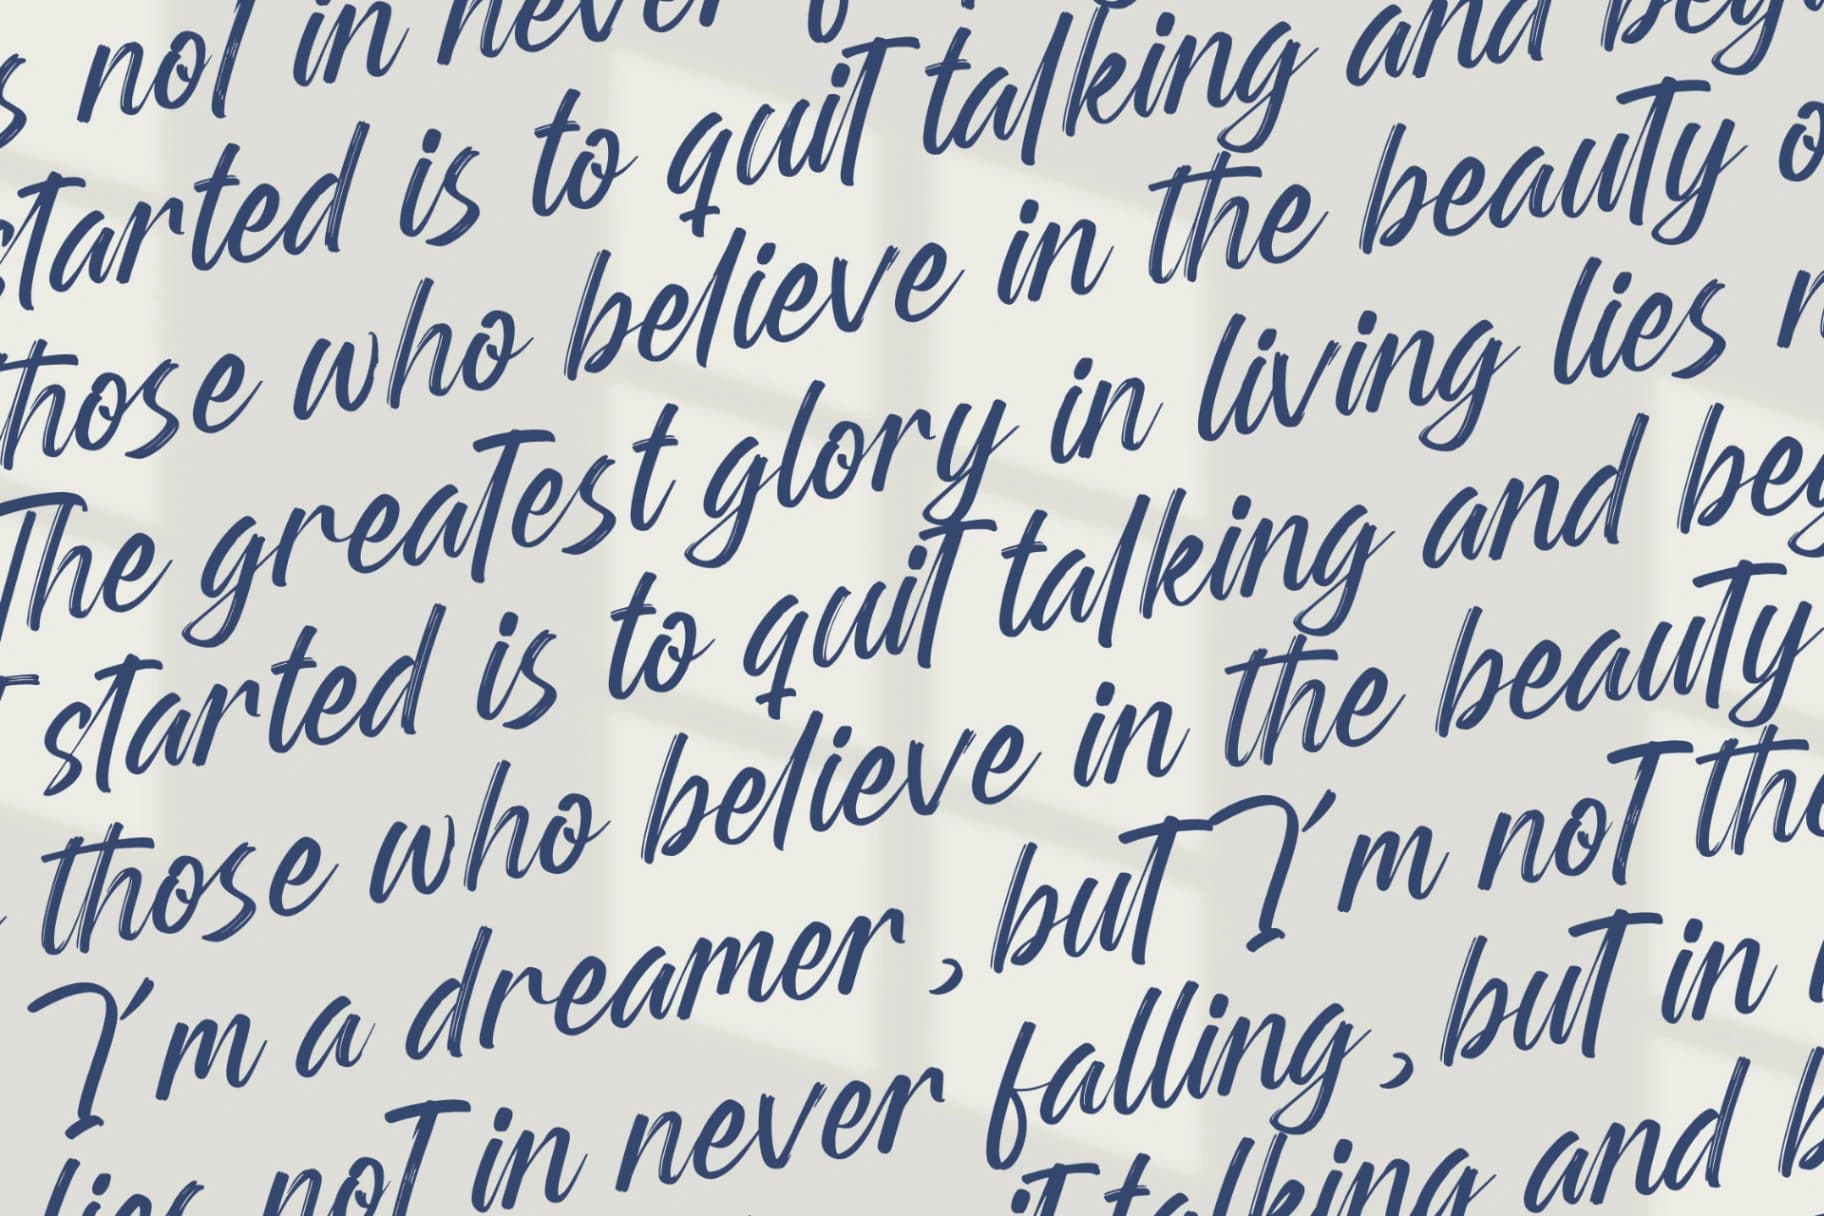 not in never
started is to quit talking and
those who believe in the beauty
The greatest glory in living lies
started is to quit talking and
those who believe in the beauty
I'm a dreamer, but I'm not
lies not in never falling, but in
talking and